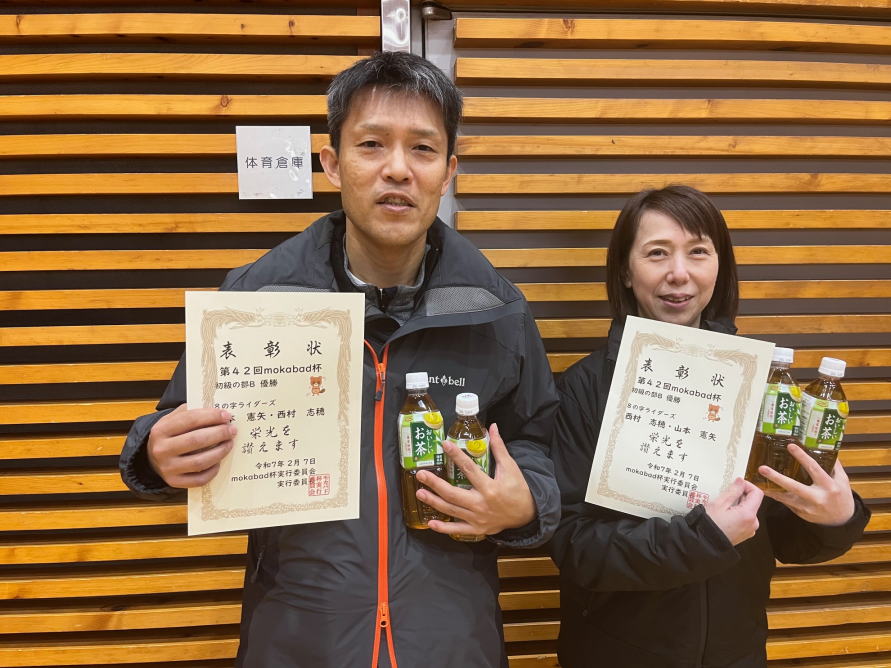 体育倉庫
表彰状
第42回mokabad杯
初級の部B 優勝
8の字ライダーズ
本 憲矢・西村 志穂
栄光を
讃えます
令和7年2月7日
mokabad杯実行委員会
実行委員
mont·bell
おいしい
お茶
表彰状
第42回mokabad杯
初級の部B 優勝
8の字ライダーズ
西村 志穂・山本 憲矢
栄光を
讃えます
令和7年2月7日
mokabad杯実行委員会
実行委員
お茶
お茶